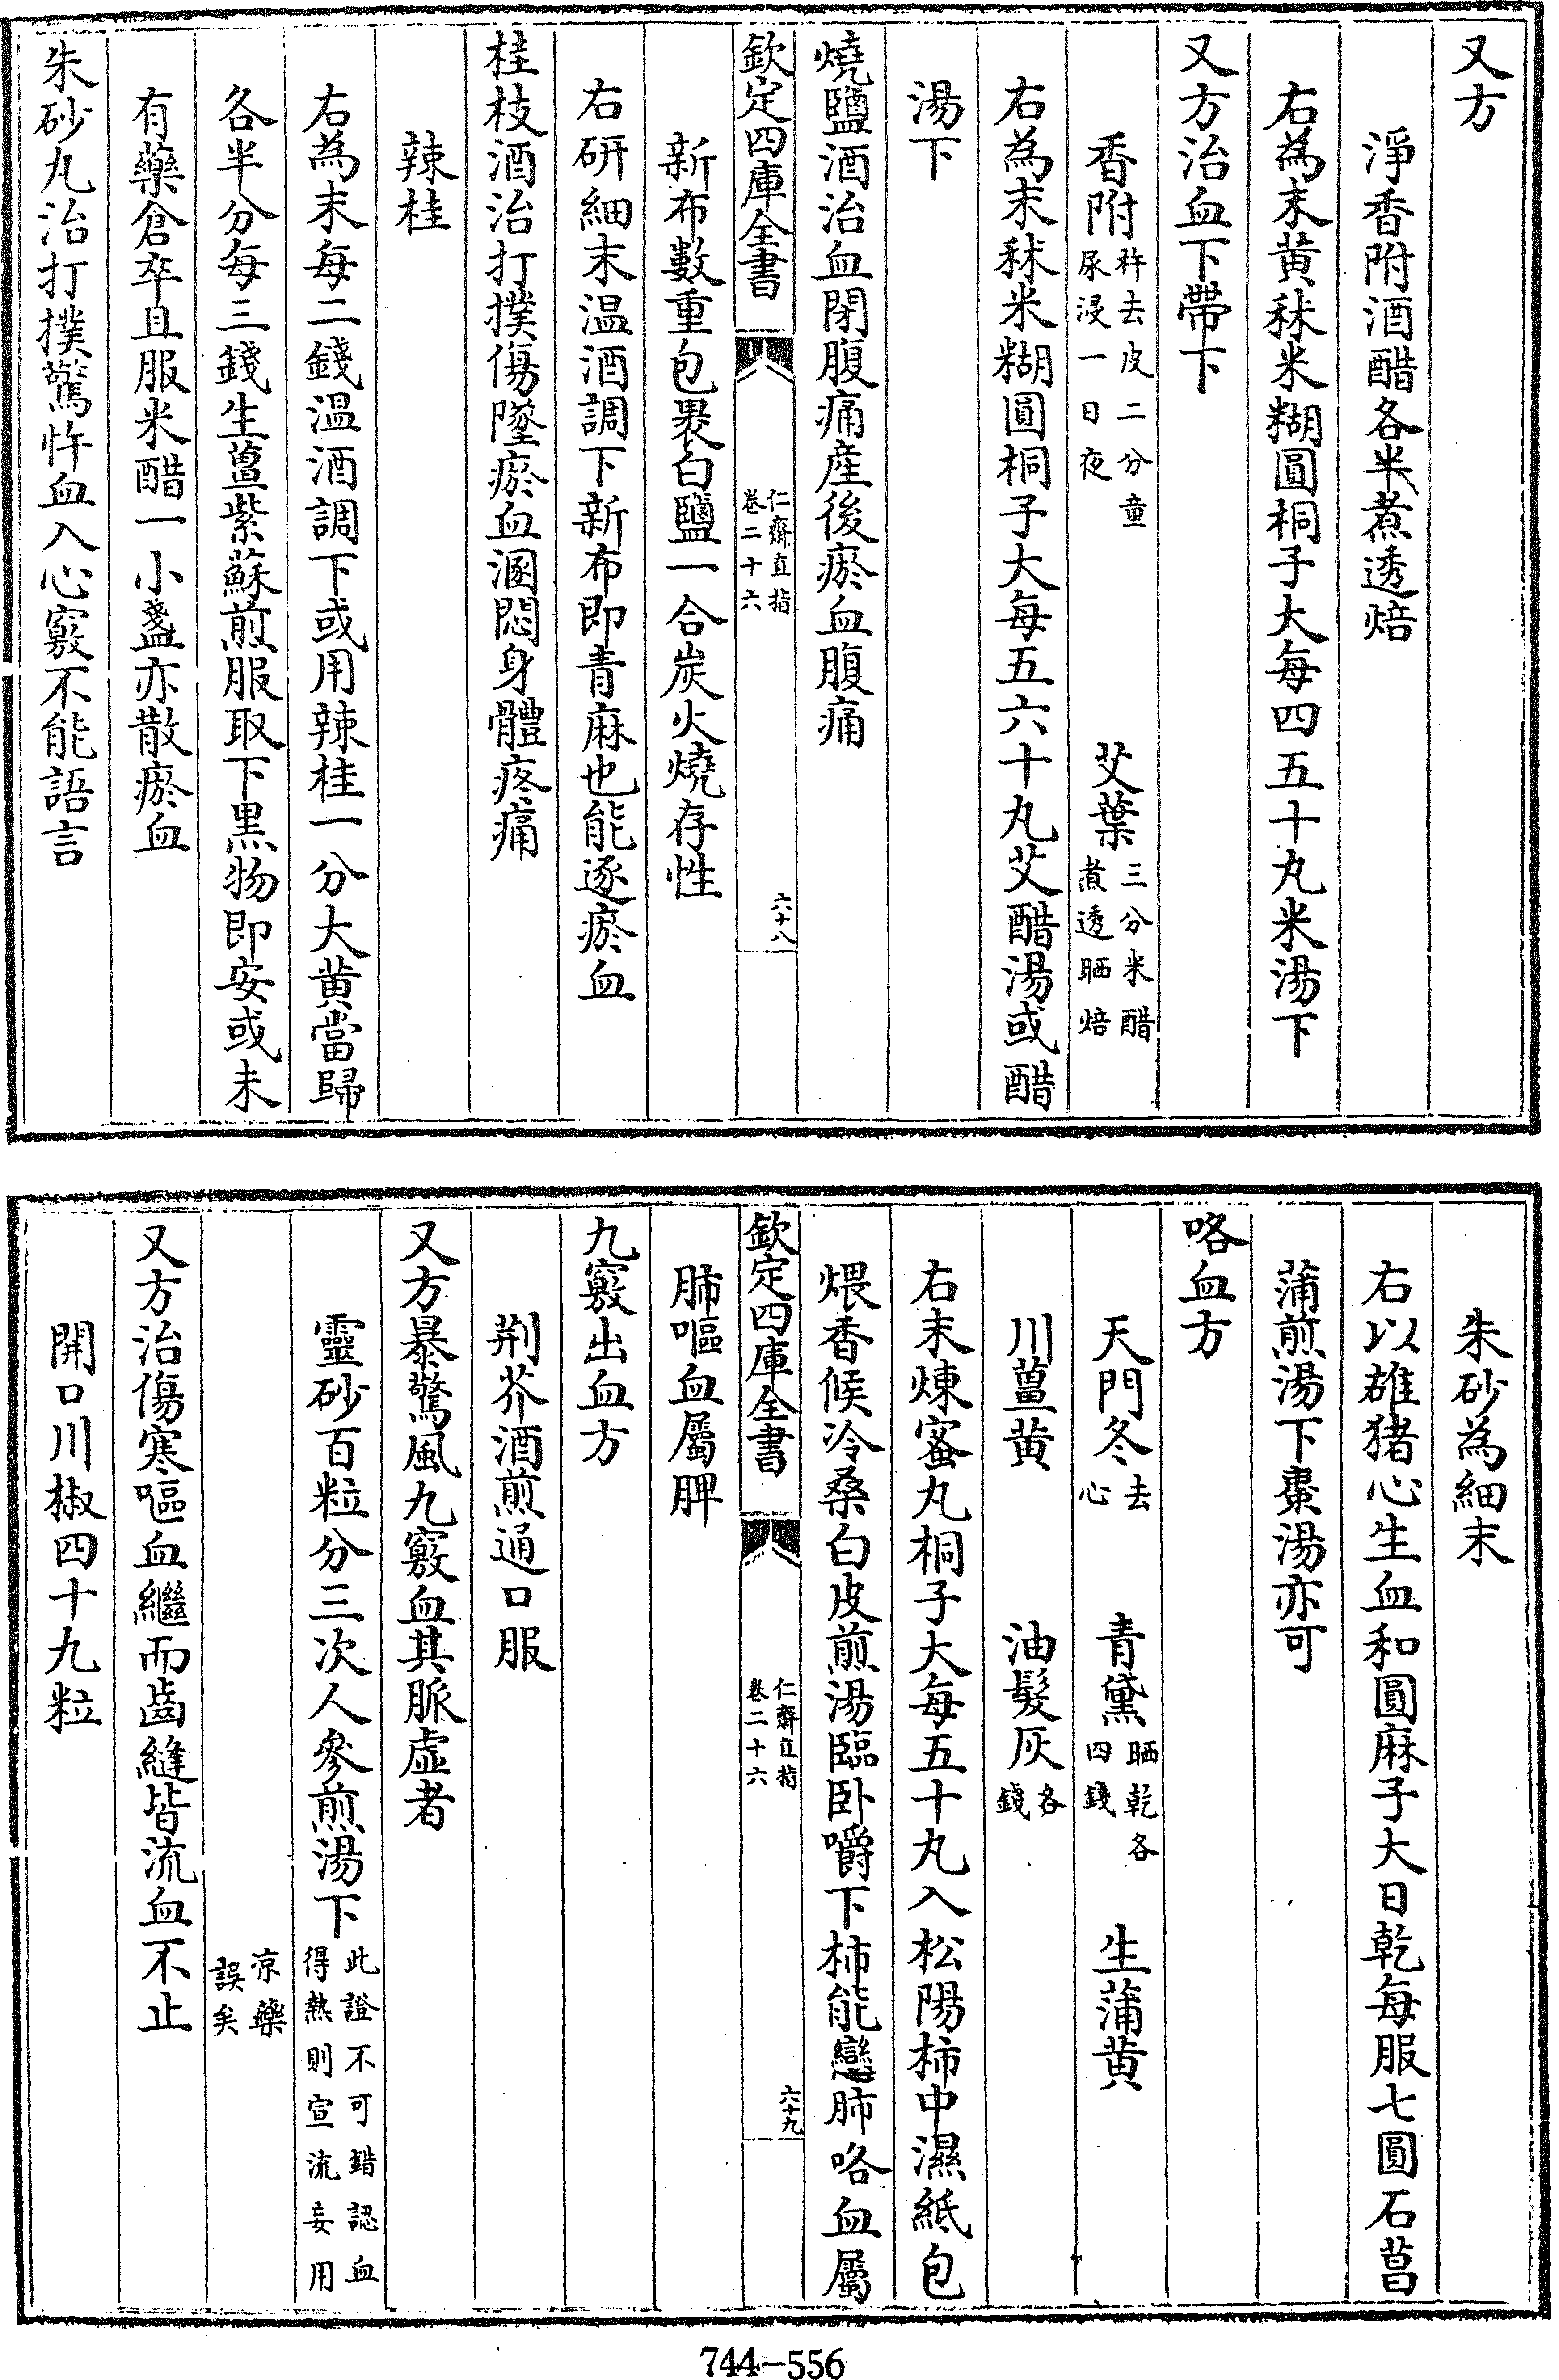 又方
淨香附酒醋各半煮透焙
右為末黄秫米糊圓桐子大每四五十丸米湯下
又方治血下帶下
香附杵去皮二分童尿浸一日夜　艾葉三分米醋煮透晒焙
右為末秫米糊圓桐子大每五六十丸艾醋湯或醋
湯下
燒鹽酒治血閉腹痛産後瘀血腹痛
欽定四庫全書　仁齋直指卷二十六　六十八
新布數重包裹白鹽一合炭火燒存性
右研細末温酒調下新布即青麻也能逐瘀血
桂枝酒治打撲傷墜瘀血溷悶身體疼痛
辣桂
右為末每二錢温酒調下或用辣桂一分大黄當歸
各半分每三錢生薑紫蘇煎服取下黒物即安或未
有藥倉卒且服米醋一小盞亦散瘀血
朱砂丸治打撲驚忤血入心竅不能語言
朱砂為細末
右以雄猪心生血和圓麻子大日乾每服七圓石菖
蒲煎湯下棗湯亦可
咯血方
天門冬去心　青黛晒乾各四錢　生蒲黄
川薑黄　油髮灰各錢
右末煉蜜丸桐子大每五十丸入松陽柿中濕紙包
煨香候冷桑白皮煎湯臨卧嚼下柿能戀肺咯血屬
欽定四庫全書　仁齋直指卷二十六　六十九
肺嘔血屬脾
九竅出血方
荆芥酒煎通口服
又方暴驚風九竅血其脈虚者
靈砂百粒分三次人參煎湯下此證不可錯認血得熱則宣流妄用
凉藥誤矣
又方治傷寒嘔血繼而齒縫皆流血不止
開口川椒四十九粒
744-556